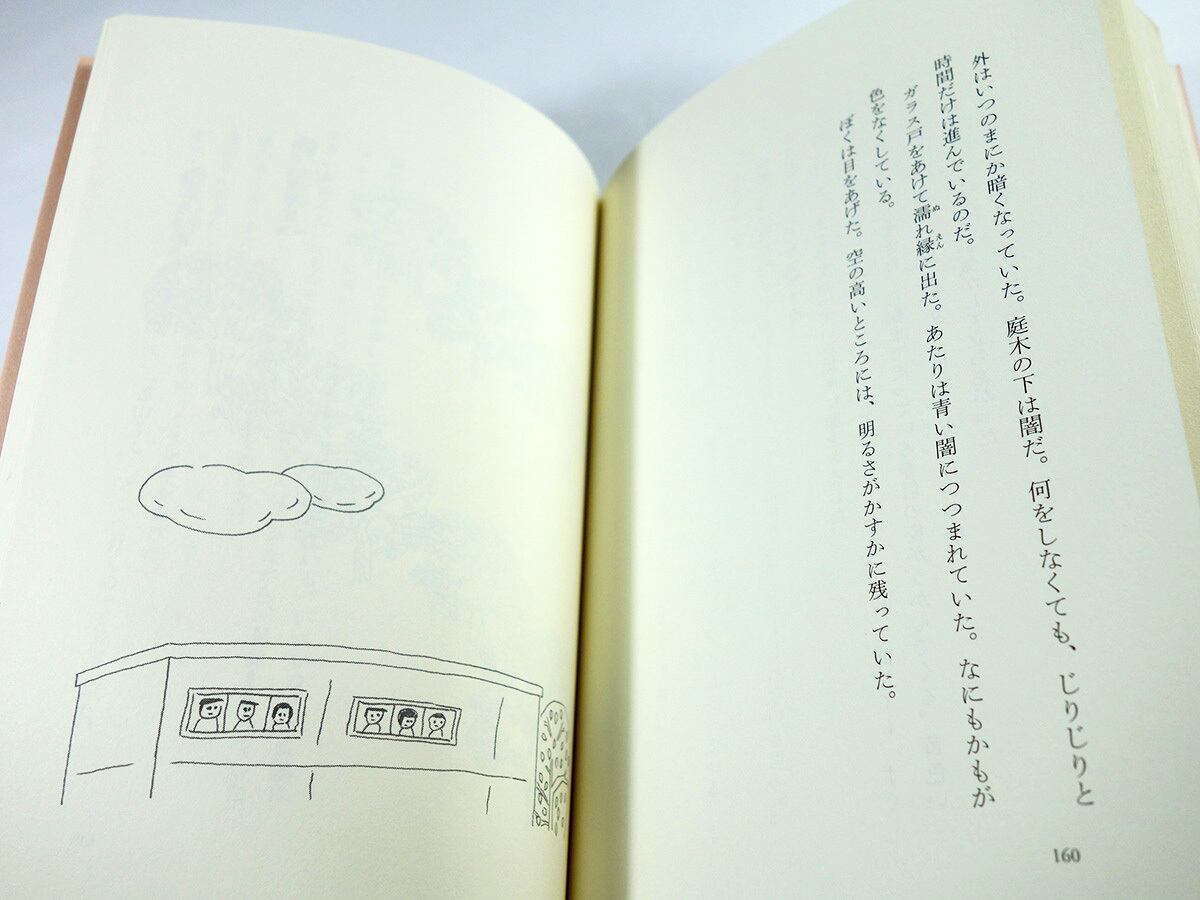 外はいつのまにか暗くなっていた。庭木の下は闇だ。何をしなくても、じりじりと
時間だけは進んでいるのだ。
ガラス戸をあけて濡れ縁に出た。あたりは青い闇につつまれていた。なにもかもが
ぬ
えん
色をなくしている。
ぼくは目をあげた。空の高いところには、明るさがかすかに残っていた。
160